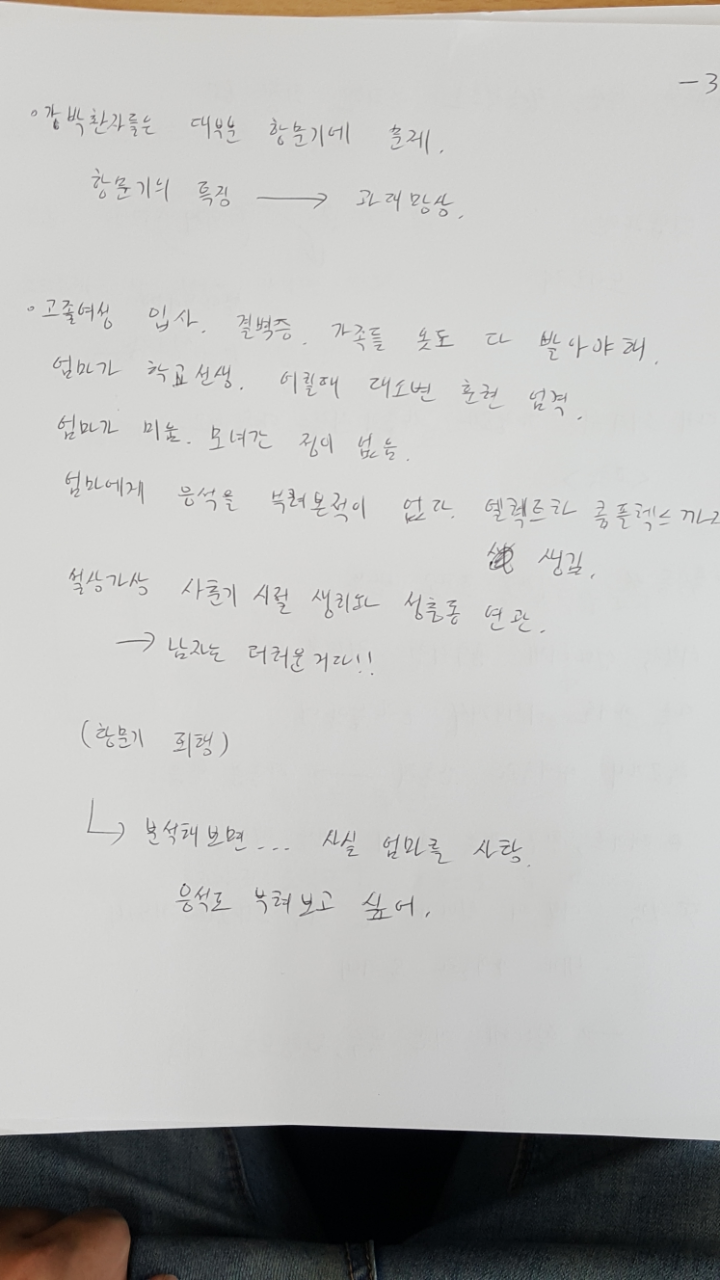 -3
• 강박환자들은 대부분 항문기에 문제.
항문기의 특징 → 과대망상.
• 고졸여성 입사. 결벽증. 가족들 옷도 다 빨아야해.
엄마가 학교선생. 어릴때 대소변 훈련 엄격.
엄마가 미움. 모녀간 정이 없음.
엄마에게 응석을 부려본적이 없다. 엘렉트라 콤플렉스까지
생김.
설상가상 사춘기 시절 생리와 성충동 연관.
→ 남자는 더러운거다!!
(항문기 퇴행)
↳ 분석해보면... 사실 엄마를 사랑.
응석도 부려보고 싶어.